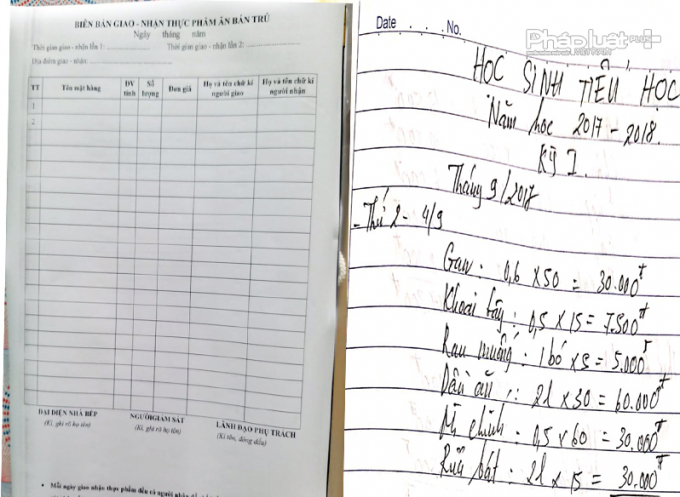 BIÊN BẢN GIAO - NHẬN THỰC PHẨM ĂN BÁN TRÚ
Ngày tháng năm
Thời gian giao - nhận lần 1: Thời gian giao - nhận lần 2:
Địa điểm giao - nhận:
TT Tên mặt hàng ĐV tính Số lượng Đơn giá Họ và tên chữ kí người giao Họ và tên chữ kí người nhận
1
2
ĐẠI DIỆN NHÀ BẾP NGƯỜI GIÁM SÁT LÃNH ĐẠO PHỤ TRÁCH
(Kí, ghi rõ họ tên) (Kí, ghi rõ họ tên) (Kí tên, đóng dấu)
• Mỗi ngày giao nhận thực phẩm đều có người nhận
Date No.
Pháp luật PLUS
VIỆT NAM
HỌC SINH TIỂU HỌC
Năm học 2017 - 2018.
Kỳ I.
Tháng 9/2017
- Thứ 2 - 4/9
Gan : 0,6 x 50 = 30.000đ
Khoai tây : 0,5 x 15 = 7.500đ
Rau muống : 1 bó x 5 = 5.000đ
Dầu ăn : 2l x 30 = 60.000đ
Mì chính : 0,5 x 60 = 30.000đ
Rửa bát : 2l x 15 = 30.000đ